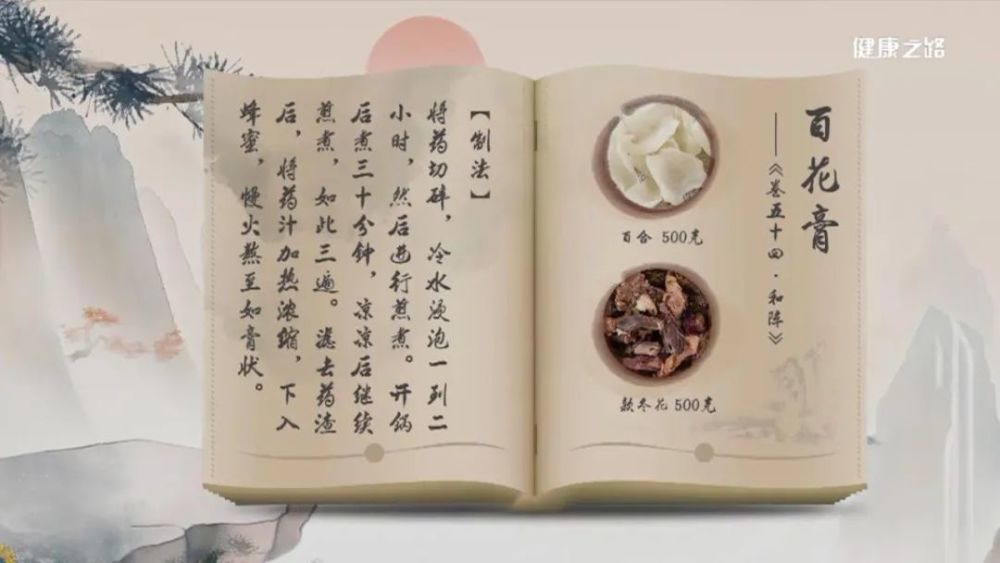 健康之路
百花膏
——《卷五十四·和阵》
百合 500克
款冬花 500克
【制法】
将药切碎，冷水浸泡一到二
小时，然后进行煎煮。开锅
后煮三十分钟，凉凉后继续
煎煮，如此三遍。滤去药渣
后，将药汁加热浓缩，下入
蜂蜜，慢火熬至如膏状。